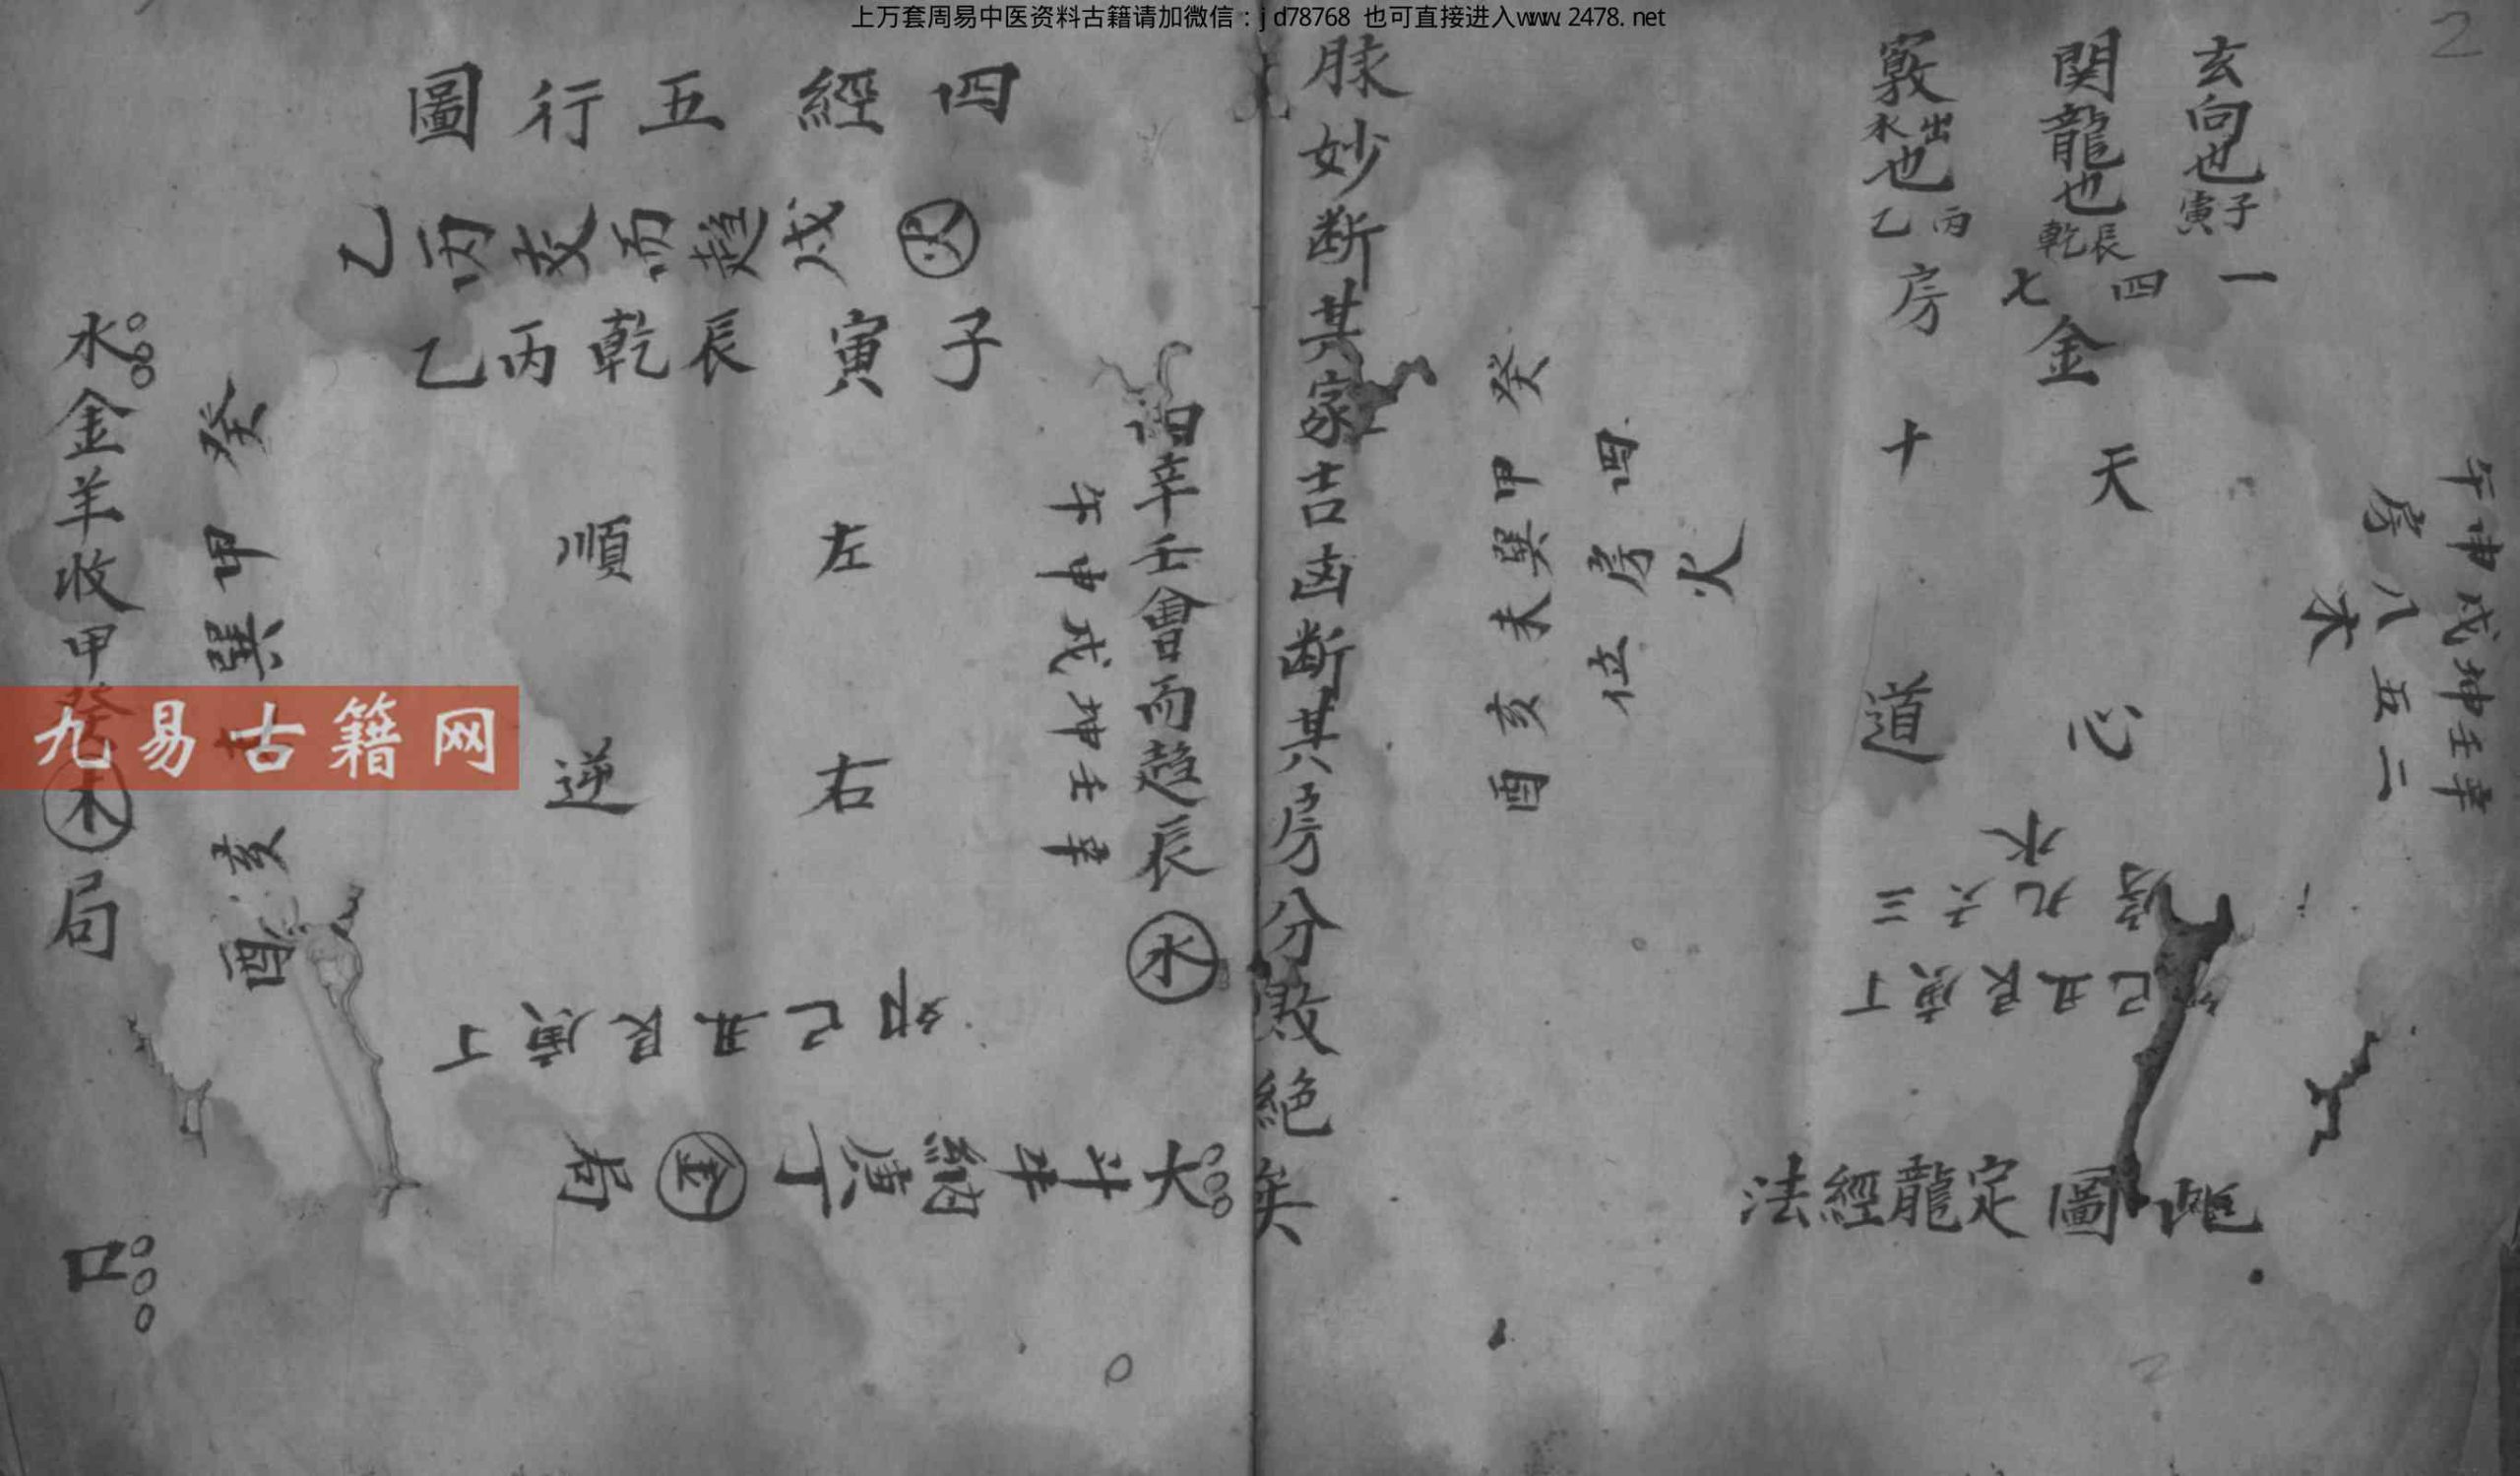 上万套周易中医资料古籍请加微信：jd78768 也可直接进入www.2478.net
2
玄向也子寅
関龍也辰乾
竅出水也丙乙
一四七房
金
午申戌坤壬辛
房八五二
木
天心
十道
水
房九六三
巳丑艮庚丁
火
四房位
癸甲巽未亥酉
此圖定龍經法
脉妙断其家吉凶断其房分敗絶矣
四經五行圖
火戌趍而交丙乙
子寅辰乾丙乙
辛壬會而趋辰水
午申戌坤壬辛
左順
右逆
卯巳丑艮庚丁
大斗牛納庚丁金局
癸甲巽亥酉
水金羊收甲癸木局
口
九易古籍网